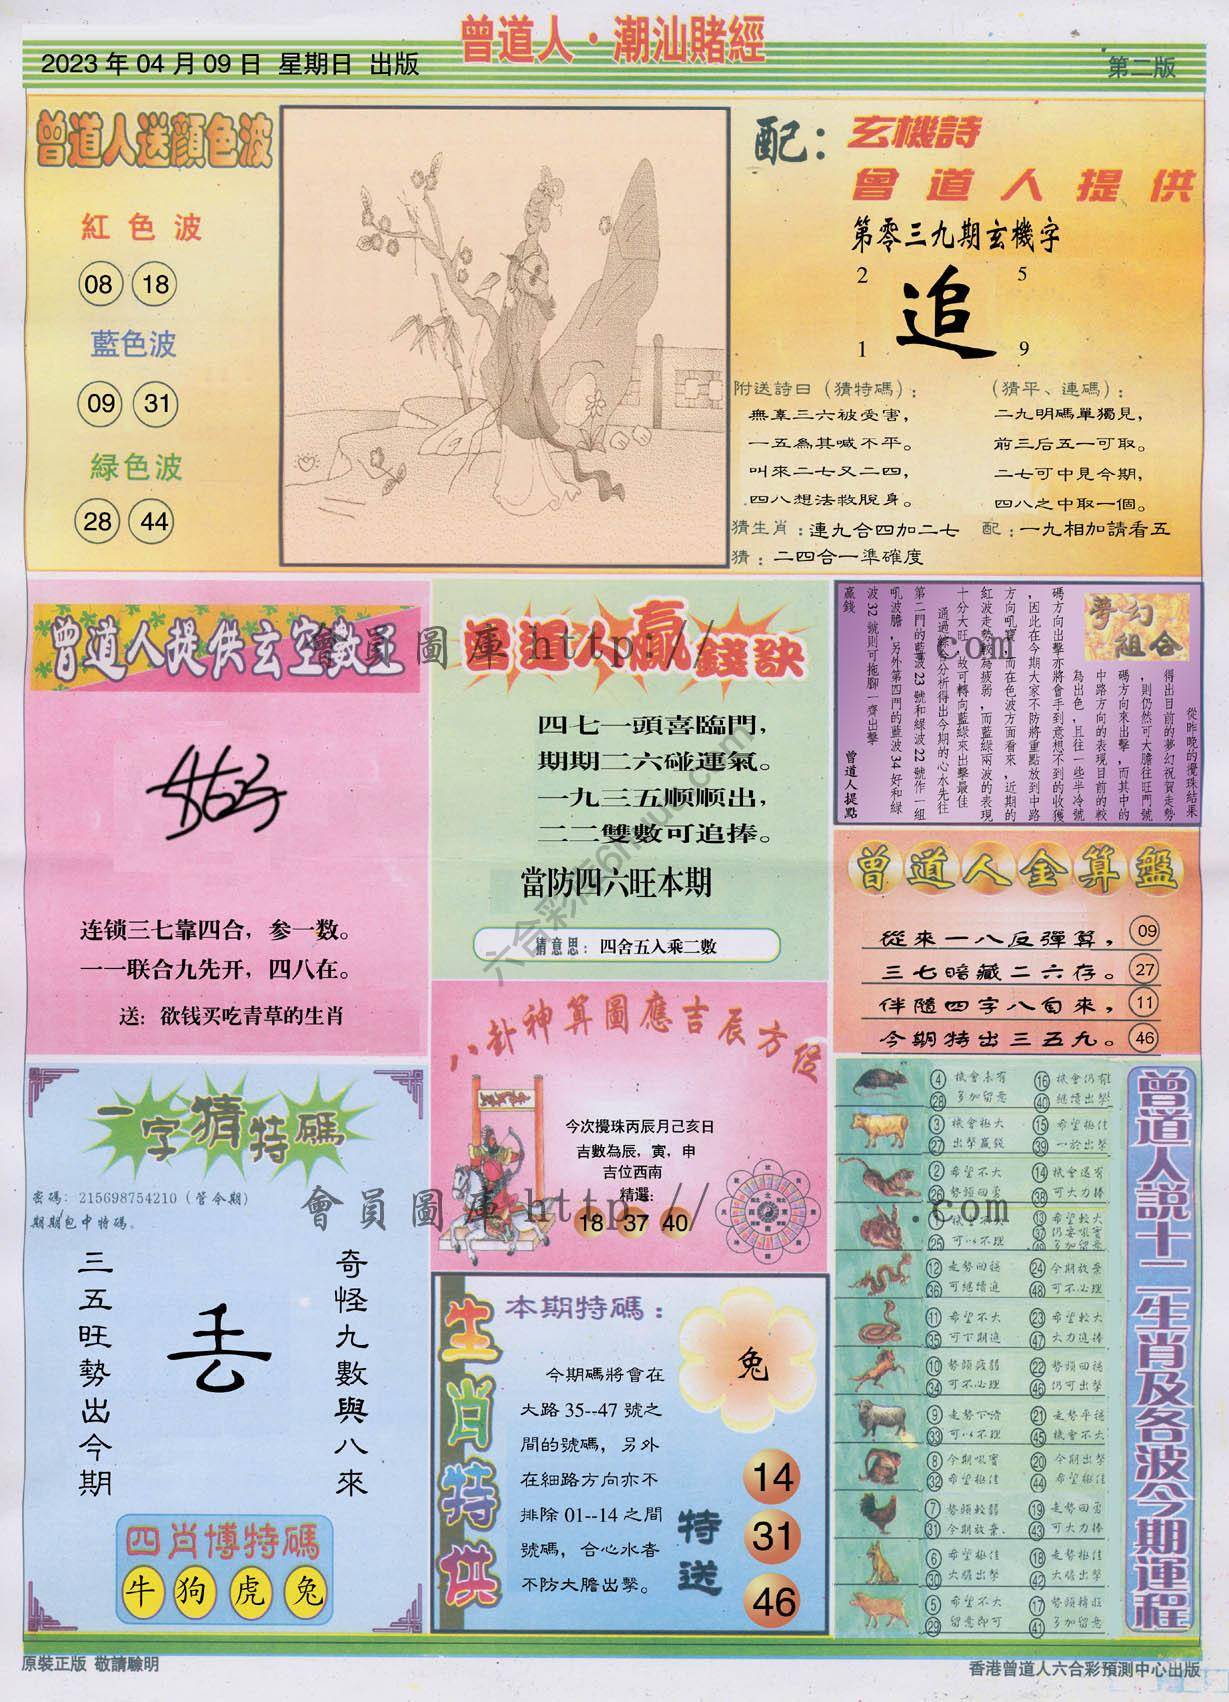 曾道人·潮汕賭經
2023 年 04 月 09 日 星期日 出版
第二版
曾道人送顏色波
紅色波
08 18
藍色波
09 31
緑色波
28 44
配：玄機詩
曾道人提供
第零三九期玄機字
2 5
追
1 9
附送詩曰（猜特碼）：
無辜三六被受害，
一五為其喊不平。
叫來二七又二四，
四八想法救脫身。
（猜平、連碼）：
二九明碼單獨見，
前三后五一可取。
二七可中見今期，
四八之中取一個。
猜生肖：連九合四加二七
配：一九相加請看五
猜：二四合一準確度
曾道人提供玄空數王
连锁三七靠四合，参一数。
一一联合九先开，四八在。
送：欲钱买吃青草的生肖
曾道人贏錢訣
四七一頭喜臨門，
期期二六碰運氣。
一九三五順順出，
二二雙數可追捧。
當防四六旺本期
猜意思：四舍五入乘二數
夢幻組合
從昨晚的攪珠結果
得出目前的夢幻祝賀走勢
，則仍然可大膽往旺門號
碼方向來出擊，而其中的
中路方向的表現目前的較
為出色，且往一些半冷號
碼方向出擊亦將會手到意想不到的收獲
，因此在今期大家不防將重點放到中路
方向吼寶，而在色波方面看來，近期的
紅波走勢較為疲弱，而藍綠兩波的表現
十分大旺，故可轉向藍綠來出擊最佳
通過綜合分析得出今期的心水先往
第二門的藍波 23 號和綠波 22 號作一組
吼波膽，另外第四門的藍波 34 好和綠
波 32 號則可拖腳一齊出擊
贏錢
曾道人提點
曾道人金算盤
從來一八反彈算， 09
三七暗藏二六存。 27
伴隨四字八自來， 11
今期特出三五九。 46
八卦神算圖應吉辰方位
今次攪珠丙辰月己亥日
吉數為辰，寅，申
吉位西南
精選：
18 37 40
一字猜特碼
密碼：215698754210（管今期）
期期包中特碼。
奇怪九數與八來
丢
三五旺勢出今期
四肖博特碼
牛 狗 虎 兔
生肖特供
本期特碼：
兔
今期碼將會在
大路 35--47 號之
間的號碼，另外
在細路方向亦不
排除 01--14 之間
號碼，合心水者
不防大膽出擊。
特送
14
31
46
曾道人説十二生肖及各波今期運程
4 機會未有 16 機會仍有
28 多加留意 40 繼續出擊
3 機會極大 15 希望極佳
27 出擊贏錢 39 一於出擊
2 希望不大 14 機會還有
26 勢頭回勇 38 可大力捧
1 機會不大 13 希望較大
25 可以不理 37 仍要吼實
49 多加留意
12 走勢回穩 24 今期放棄
36 可繼續追 48 可不必理
11 希望不大 23 希望較大
35 可下期追 47 大力追捧
10 勢頭疲弱 22 勢頭回穩
34 可不必理 46 仍可出擊
9 走勢下滑 21 走勢平穩
33 可以不理 45 機會不大
8 今期吼實 20 今期出擊
32 希望極佳 44 希望極佳
7 勢頭較弱 19 走勢回勇
31 今期放棄 43 可大力捧
6 希望極佳 18 走勢極佳
30 大膽出擊 42 大膽出擊
5 希望不大 17 勢頭轉旺
29 留意即可 41 多加留意
會員圖庫 http:// .com
會員圖庫 http:// .com
原裝正版 敬請驗明
香港曾道人六合彩預測中心出版